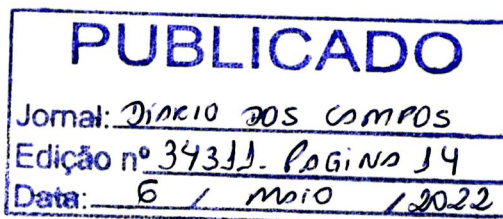 PUBLICADO
Jornal: DIÁRIO DOS CAMPOS
Edição nº 34311 - PAGINA 14
Data: 6 / MAIO / 2022